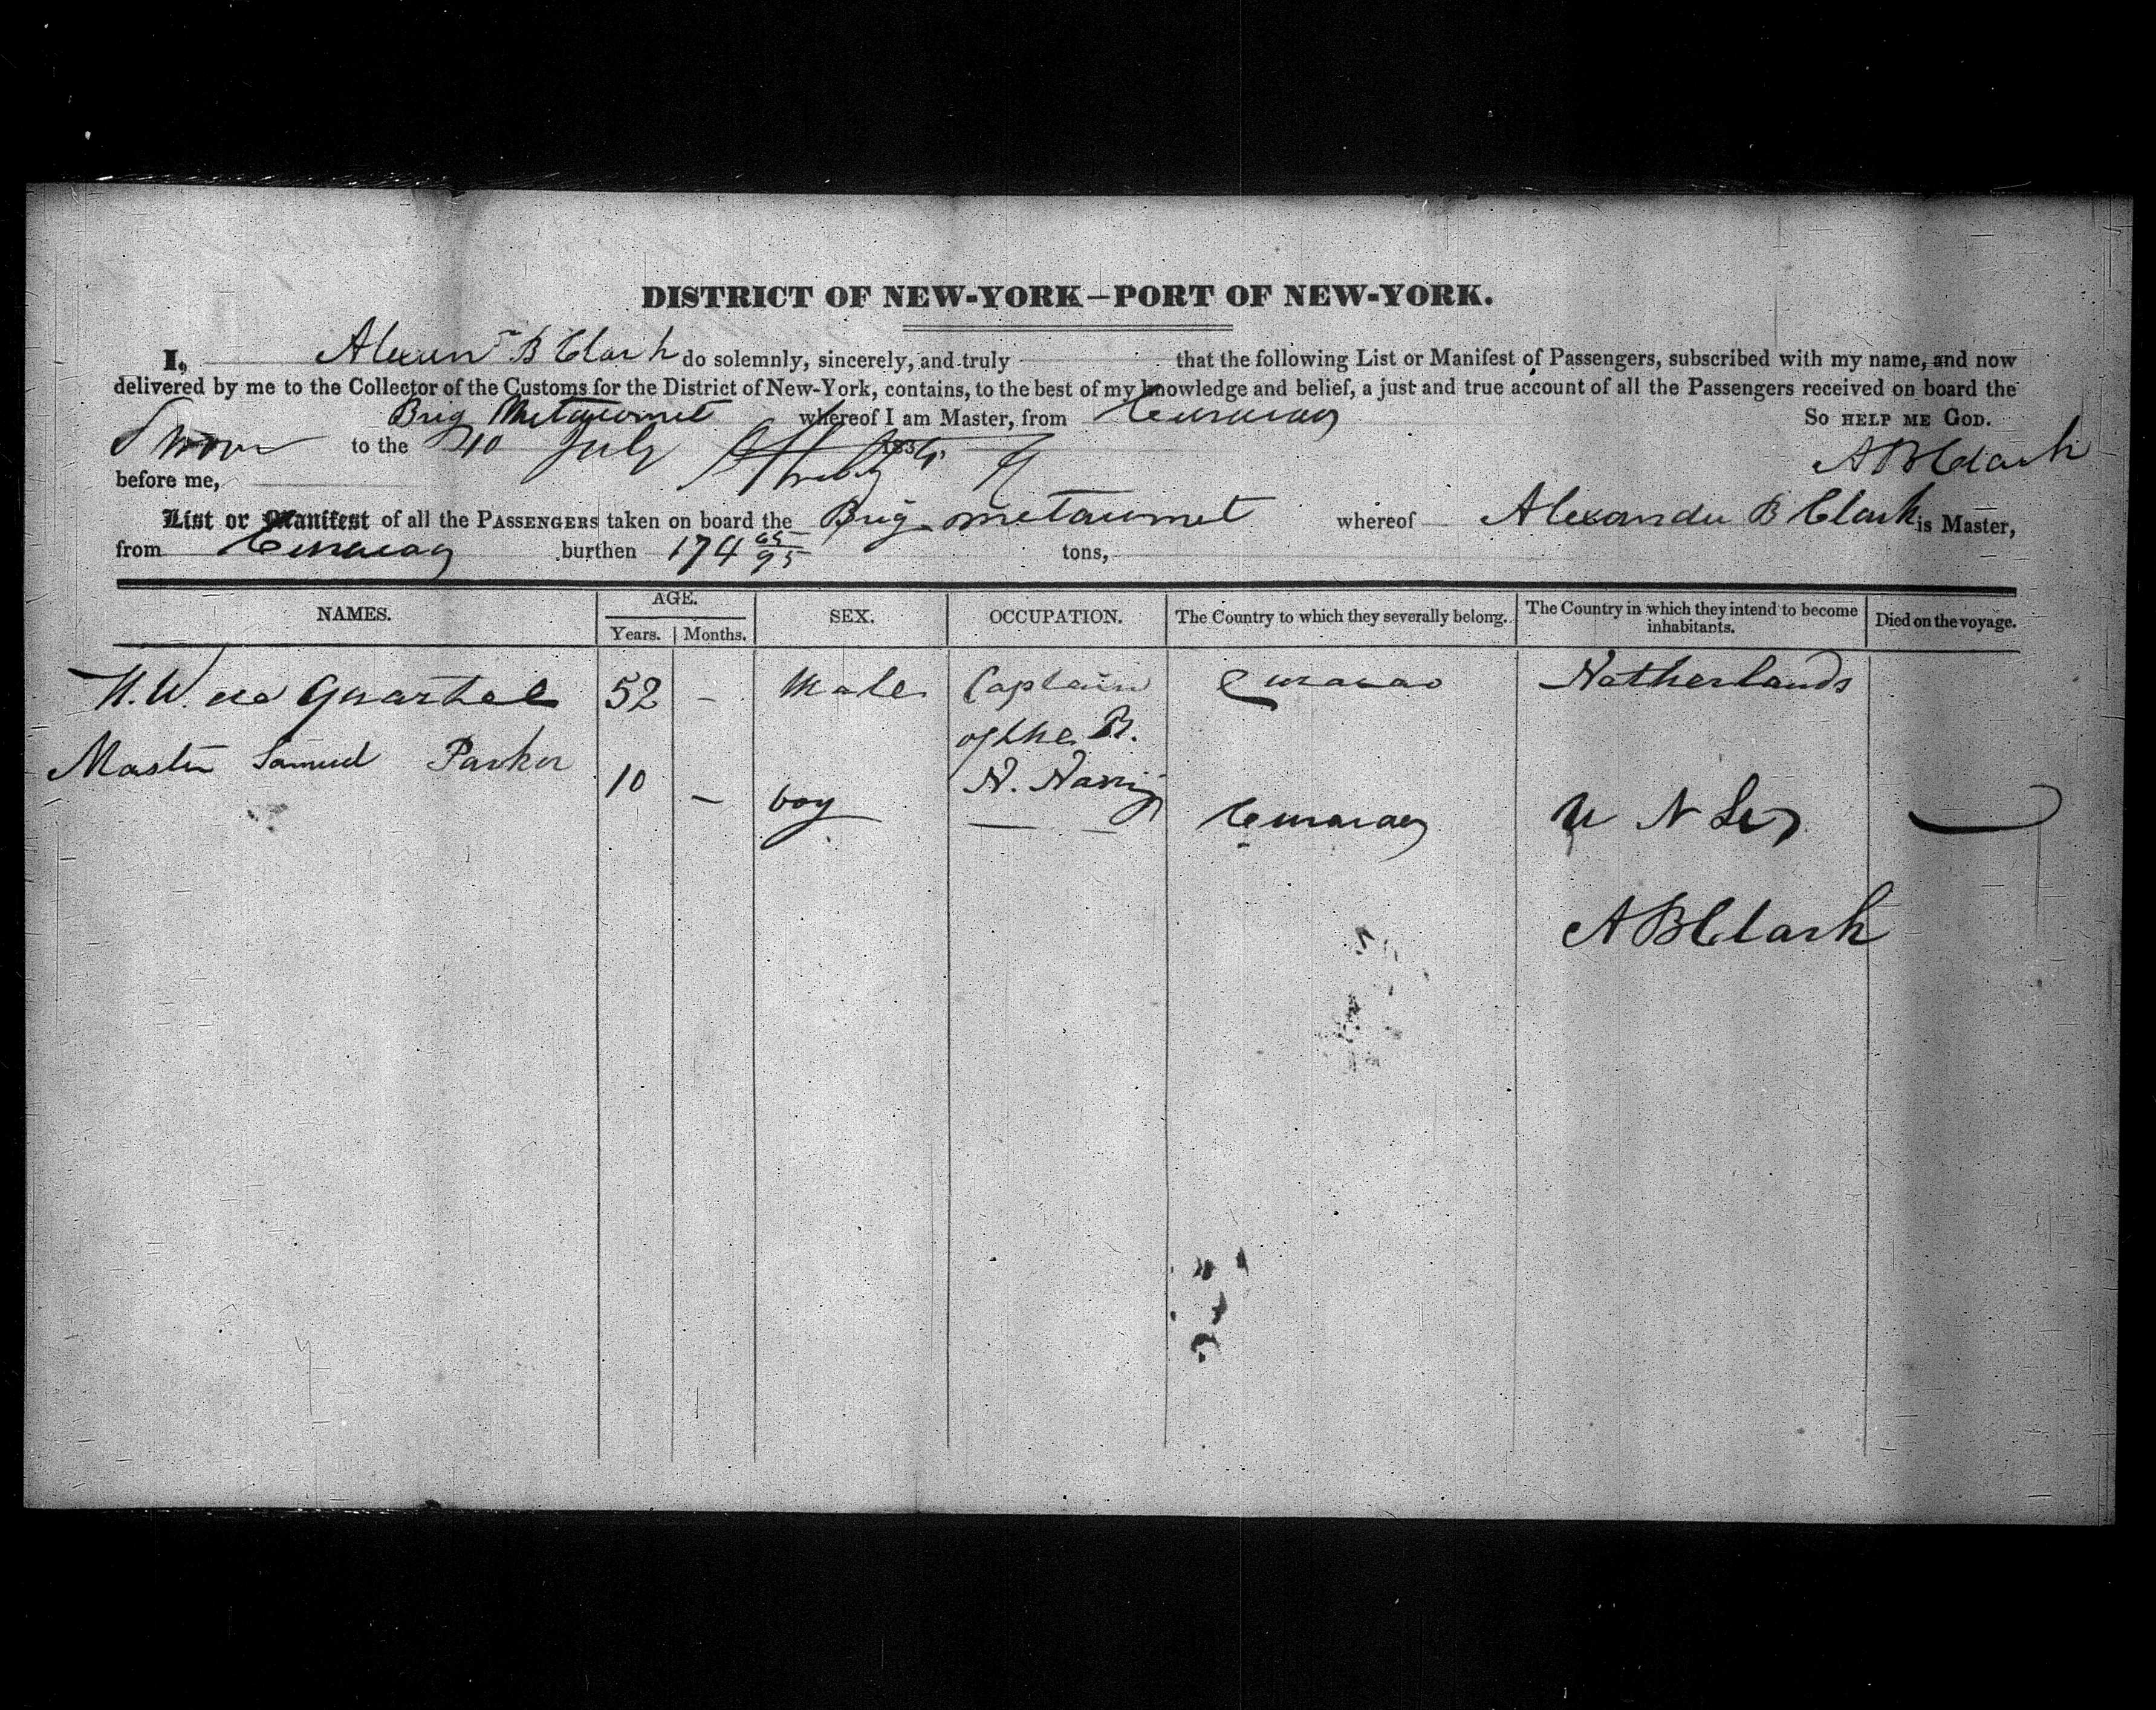 DISTRICT OF NEW-YORK—PORT OF NEW-YORK.
I, Alexanr B Clark do solemnly, sincerely, and truly that the following List or Manifest of Passengers, subscribed with my name, and now
delivered by me to the Collector of the Customs for the District of New-York, contains, to the best of my knowledge and belief, a just and true account of all the Passengers received on board the
Brig Metacomet whereof I am Master, from Curacao So HELP ME GOD.
Sworn to the 10 July 183 A B Clark
before me,
List or Manifest of all the PASSENGERS taken on board the Brig metacomet whereof Alexander B Clark is Master,
from Curacao burthen 174 65/95 tons,
NAMES. AGE. SEX. OCCUPATION. The Country to which they severally belong. The Country in which they intend to become inhabitants. Died on the voyage.
Years. Months.
H. W. de Quartel 52 - Male Captain Curacao Netherlands
of the R.
Master Samuel Parker 10 - boy N. Navy Curacao
A B Clark